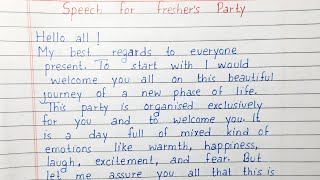 Speech for Fresher's Party
Hello all !
My best regards to everyone
present. To start with I would
welcome you all on this beautiful
journey of a new phase of life.
This party is organised exclusively
for you and to welcome you. It
is a day full of mixed kind of
emotions like warmth, happiness,
laugh, excitement, and fear. But
let me assure you all that this is